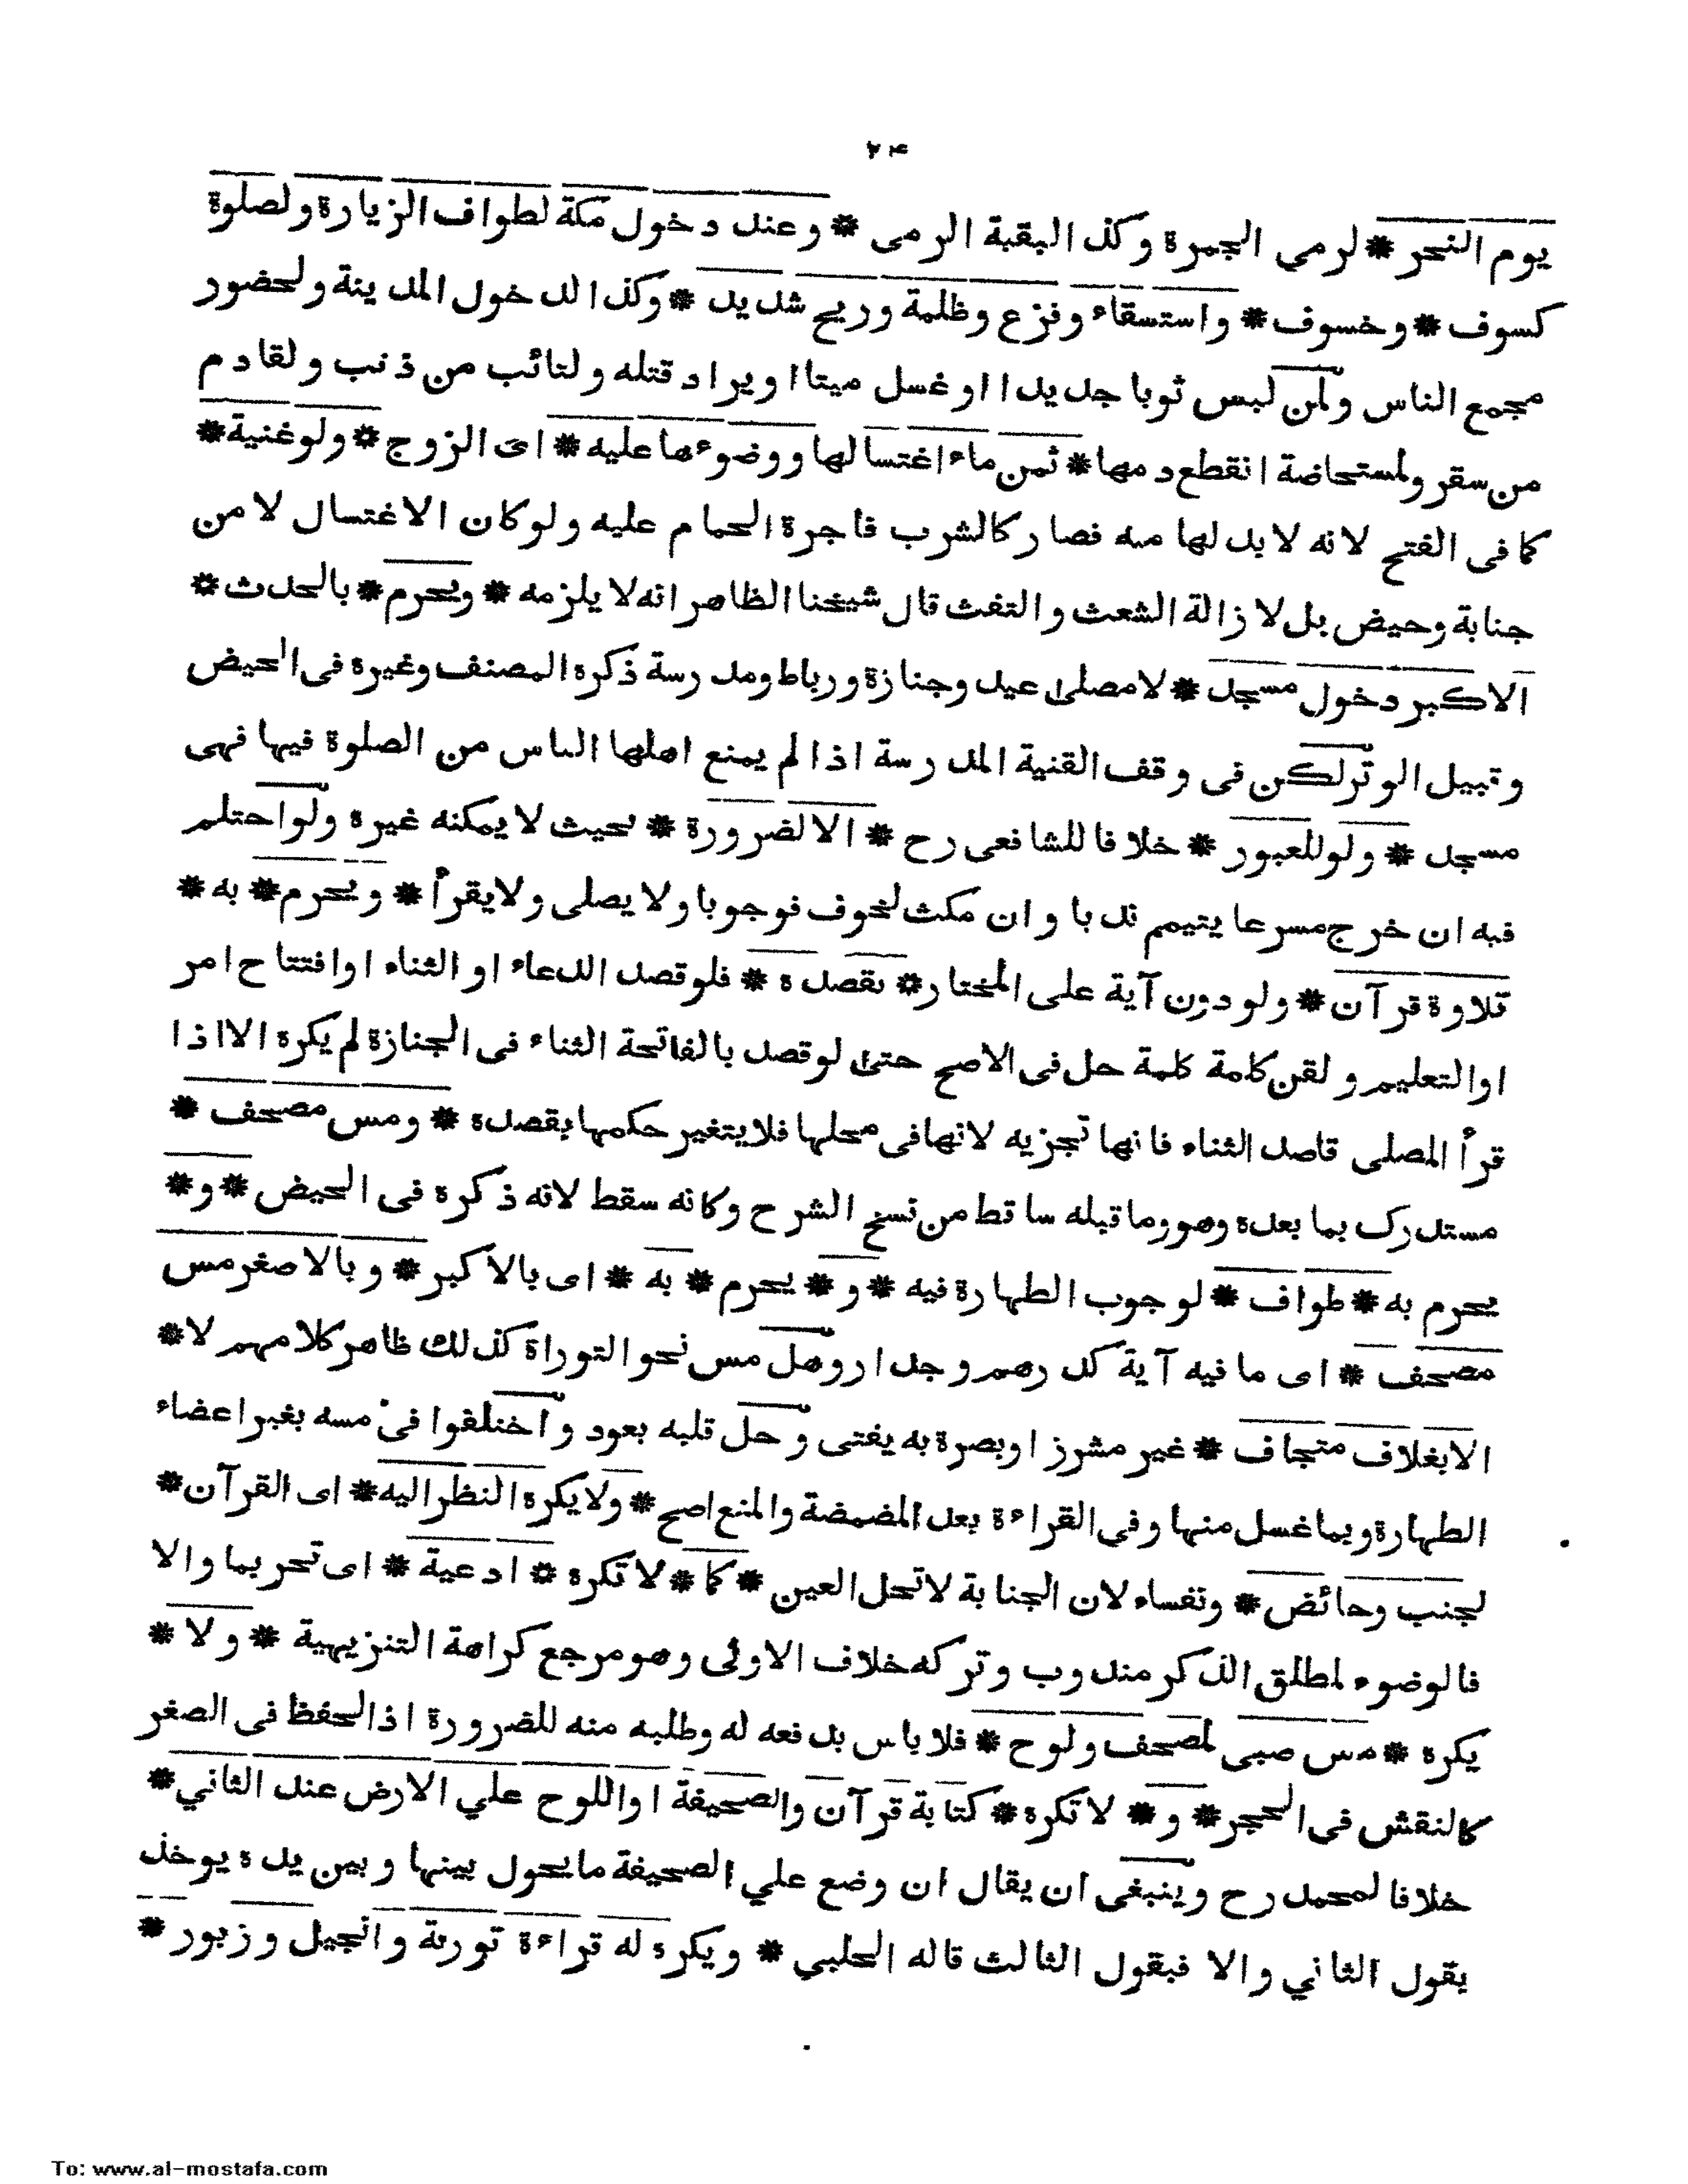 ٢٤
يوم النحر * لرمي الجمرة وكذ البقبة الرمى * وعند دخول مكة لطواف الزيارة ولصلوة
كسوف * وخسوف * واستسقاء وفزع وظلمة وريح شديد * وكذا لدخول المدينة ولحضور
مجمع الناس ولمن لبس ثوبا جديدا او غسل ميتا او يراد قتله ولتائب من ذنب ولقادم
من سقر ولمستحاضة انقطع دمها * ثمن ماء اغتسالها ووضوءها عليه * اى الزوج * ولو غنية *
كما فى الفتح لانه لا بد لها منه فصار كالشرب فاجرة الحمام عليه ولو كان الاغتسال لا من
جنابة وحيض بل لازالة الشعث والتفث قال شيخنا الظاهر انه لا يلزمه * ويحرم * بالحدث *
الاكبر دخول مسجد * لا مصلى عيد وجنازة ورباط ومدرسة ذكره المصنف وغيره فى الحيض
وقبيل الوتر لكن فى وقف القنية المدرسة اذا لم يمنع اهلها الناس من الصلوة فيها فهى
مسجد * ولو للعبور * خلافا للشافعى رح * الا لضرورة * بحيث لا يمكنه غيره ولو احتلم
فيه ان خرج مسرعا يتيمم ندبا وان مكث لخوف فوجوبا ولا يصلى ولا يقرأ * ويحرم * به *
تلاوة قرآن * ولو دون آية على المختار * بقصده * فلو قصد الدعاء او الثناء او افتتاح امر
او التعليم ولقن كلمة كلمة حل فى الاصح حتى لو قصد بالفاتحة الثناء فى الجنازة لم يكره الا اذا
قرأ المصلى قاصد الثناء فانها تجزيه لانها فى محلها فلا يتغير حكمها بقصده * ومس مصحف *
مستدرك بما بعده وهو وما قبله ساقط من نسخ الشرح وكانه سقط لانه ذكره فى الحيض * و *
يحرم به * طواف * لوجوب الطهارة فيه * و * يحرم * به * اى بالاكبر * وبالاصغر مس
مصحف * اى ما فيه آية كدرهم وجدار وهل مس نحو التوراة كذلك ظاهر كلامهم لا *
الا بغلاف متجاف * غير مشرز او بصرة به يفتى وحل قلبه بعود واختلفوا فى مسه بغير اعضاء
الطهارة وبما غسل منها وفى القراءة بعد المضمضة والمنع اصح * ولا يكره النظر اليه * اى القرآن *
لجنب وحائض * ونفساء لان الجنابة لا تحل العين * كما * لا تكره * ادعية * اى تحريما والا
فالوضوء لمطلق الذكر مندوب وتركه خلاف الاولى وهو مرجع كراهة التنزيهية * ولا *
يكره * مس صبى لمصحف ولوح * فلا باس بدفعه له وطلبه منه للضرورة اذ الحفظ فى الصغر
كالنقش فى الحجر * و * لا تكره * كتابة قرآن والصحيفة او اللوح علي الارض عند الثاني *
خلافا لمحمد رح وينبغى ان يقال ان وضع علي الصحيفة ما يحول بينها وبين يده يوخذ
يقول الثاني والا فبقول الثالث قاله الحلبي * ويكره له قراءة تورىة وانجيل وزبور *
To: www.al-mostafa.com